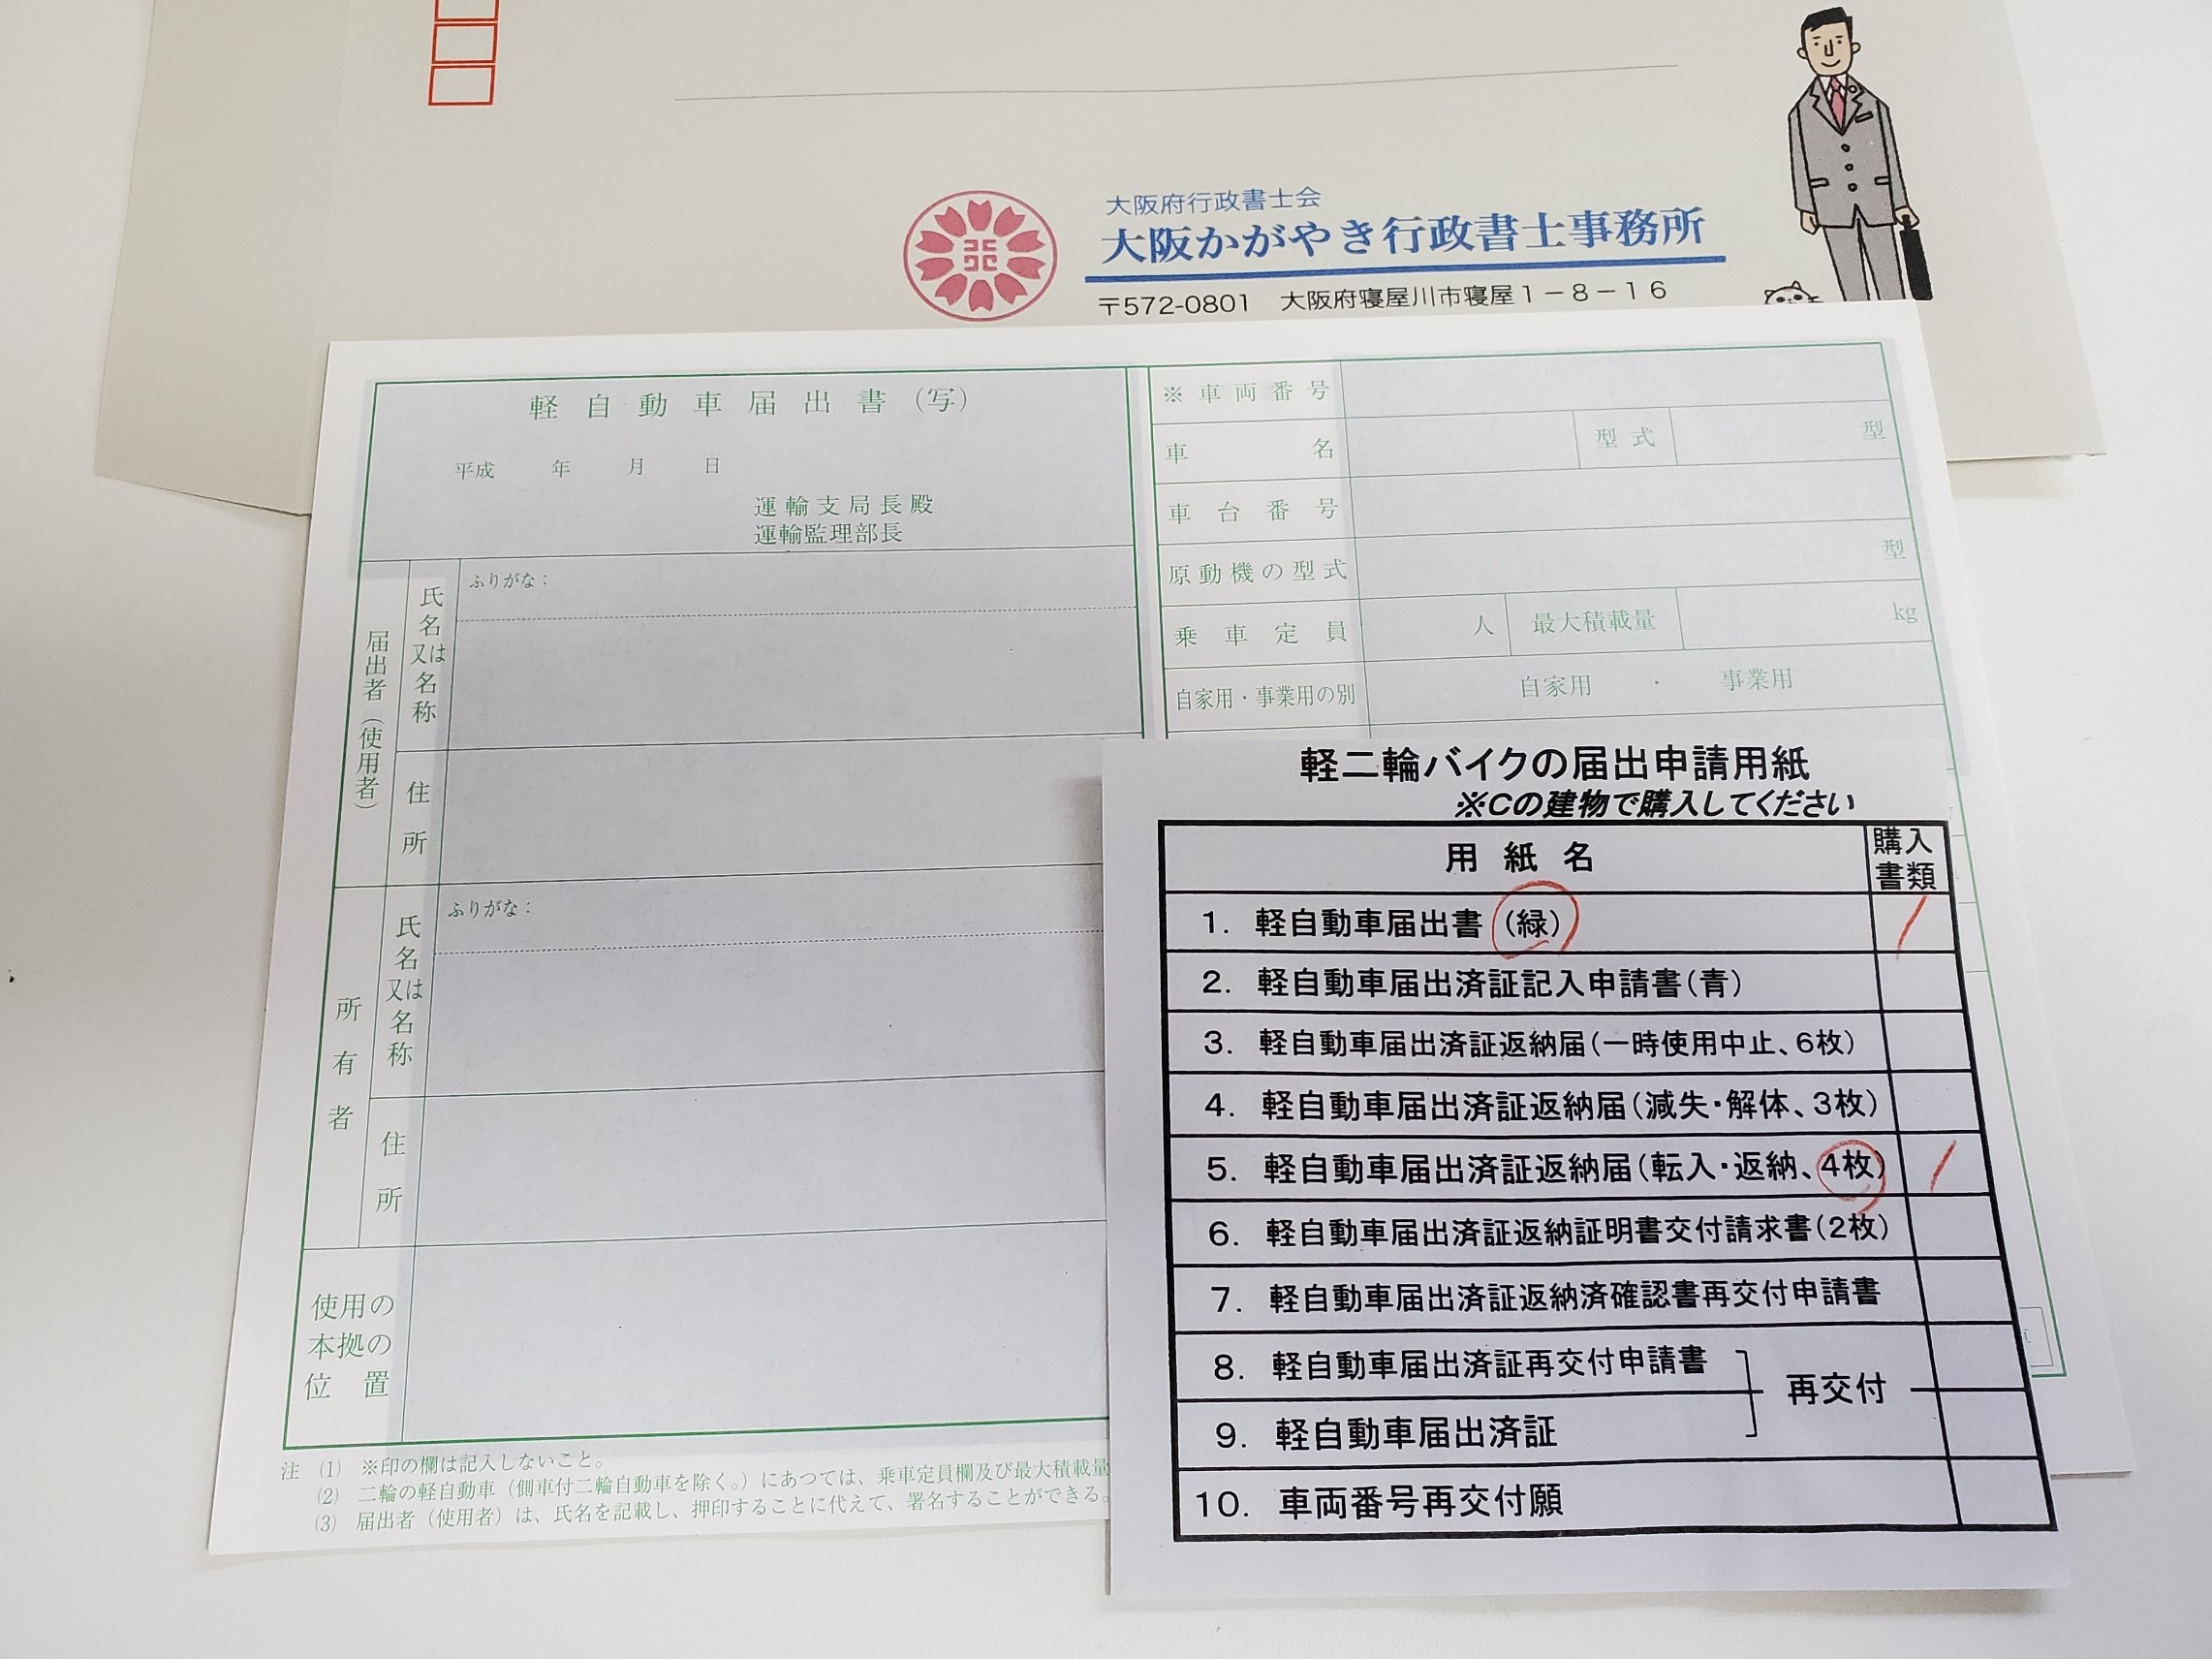 大阪府行政書士会
大阪かがやき行政書士事務所
〒572-0801 大阪府寝屋川市寝屋1-8-16
軽自動車届出書(写)
平成 年 月 日
運輸支局長殿
運輸監理部長
届出者(使用者)
氏名又は名称
ふりがな:
住所
所有者
氏名又は名称
ふりがな:
住所
使用の本拠の位置
※車両番号
車名
型式
型
車台番号
原動機の型式
型
乗車定員
人
最大積載量
kg
自家用・事業用の別
自家用 ・ 事業用
注 (1) ※印の欄は記入しないこと。
(2) 二輪の軽自動車(側車付二輪自動車を除く。)にあつては、乗車定員欄及び最大積載量
(3) 届出者(使用者)は、氏名を記載し、押印することに代えて、署名することができる。
軽二輪バイクの届出申請用紙
※Cの建物で購入してください
用紙名 購入書類
1. 軽自動車届出書(緑)
2. 軽自動車届出済証記入申請書(青)
3. 軽自動車届出済証返納届(一時使用中止、6枚)
4. 軽自動車届出済証返納届(滅失・解体、3枚)
5. 軽自動車届出済証返納届(転入・返納、4枚)
6. 軽自動車届出済証返納証明書交付請求書(2枚)
7. 軽自動車届出済証返納済確認書再交付申請書
8. 軽自動車届出済証再交付申請書
再交付
9. 軽自動車届出済証
10. 車両番号再交付願